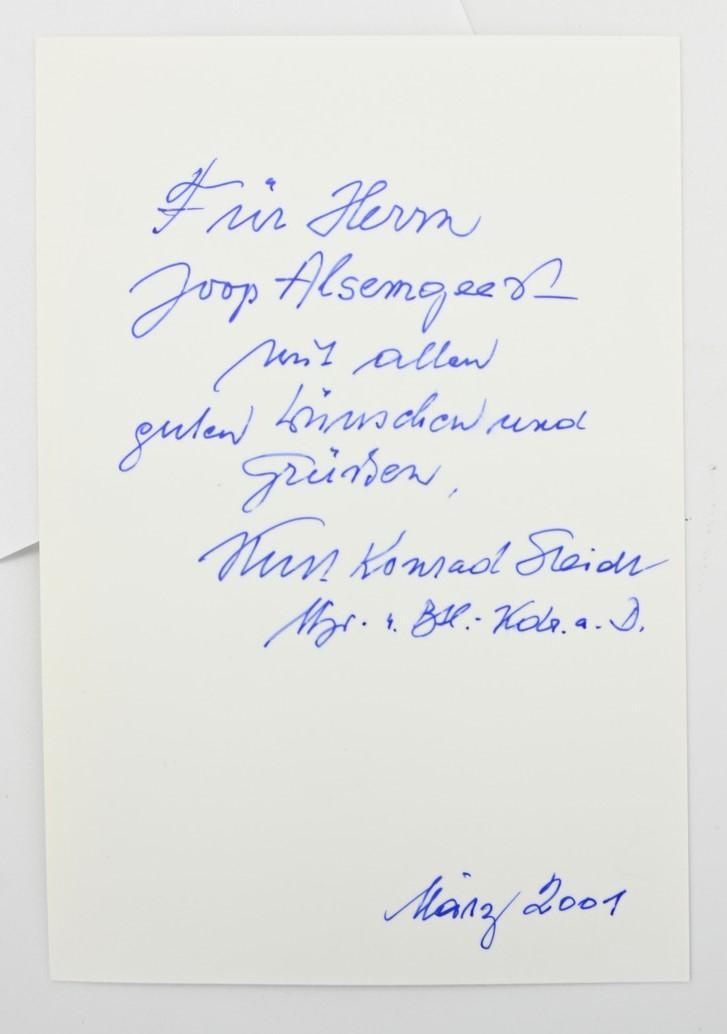 Für Herrn
Joop Alsemgeest
mit allen
guten Wünschen und
Grüßen,
Konrad
Mjr. u. Btl.- Kdr. a. D.
März 2001